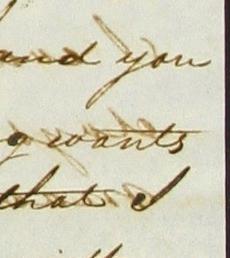 and you
wants
that I